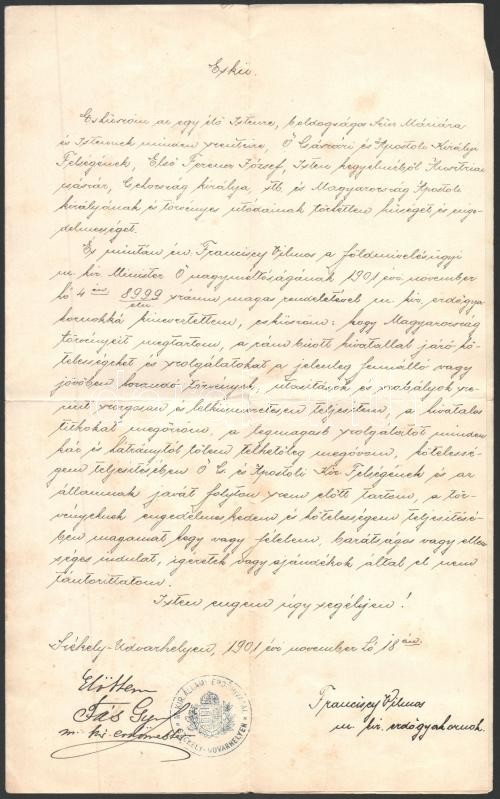 Eskü.
Esküszöm az egy élő Istenre, boldogságos Szűz Máriára
és Istennek minden szenteire, Ő Császári és Apostoli Királyi
Felségének, Első Ferencz József, Isten kegyelméből Ausztriai
császár, Csehország királya, stb. és Magyarország Apostoli
királyának és törvényes utódainak törhetlen hűséget és enge-
delmességet.
És miután én Franciscy Vilmos a földmívelésügyi
m. kir. Minister Ő nagyméltóságának 1901 évi november
hó 4 én 8999 számu magas rendeletével m. kir. erdőgya-
kornokká kineveztettem, esküszöm: hogy Magyarország
törvényeit megtartom, a rám bizott hivatallal járó kö-
telességeket és szolgálatokat a jelenleg fennálló vagy
jövőben hozandó törvények, utasítások és szabályok sze-
rint szorgosan és lelkiismeretesen teljesítem, a hivatalos
titkokat megőrizöm, a legmagasb szolgálatot minden
kár és hátránytól tőlem telhetőleg megóvom, kötelessé-
gem teljesítésében Ő Cs. és Apostoli Kir. Felségének és az
államnak javát folyton szem előtt tartom, a tör-
vényeknek engedelmeskedem és kötelességem teljesítésé-
ben magamat kegy vagy félelem, barátságos vagy ellen-
séges indulat, igéretek vagy ajándékok által el nem
tántoríttatom.
Isten engem úgy segéljen!
Székely-Udvarhelyen, 1901 évi november hó 18 án
Előttem
m. kir.
Franciscy Vilmos
m. kir. erdőgyakornok.
SZÉKELY-UDVARHELYEN